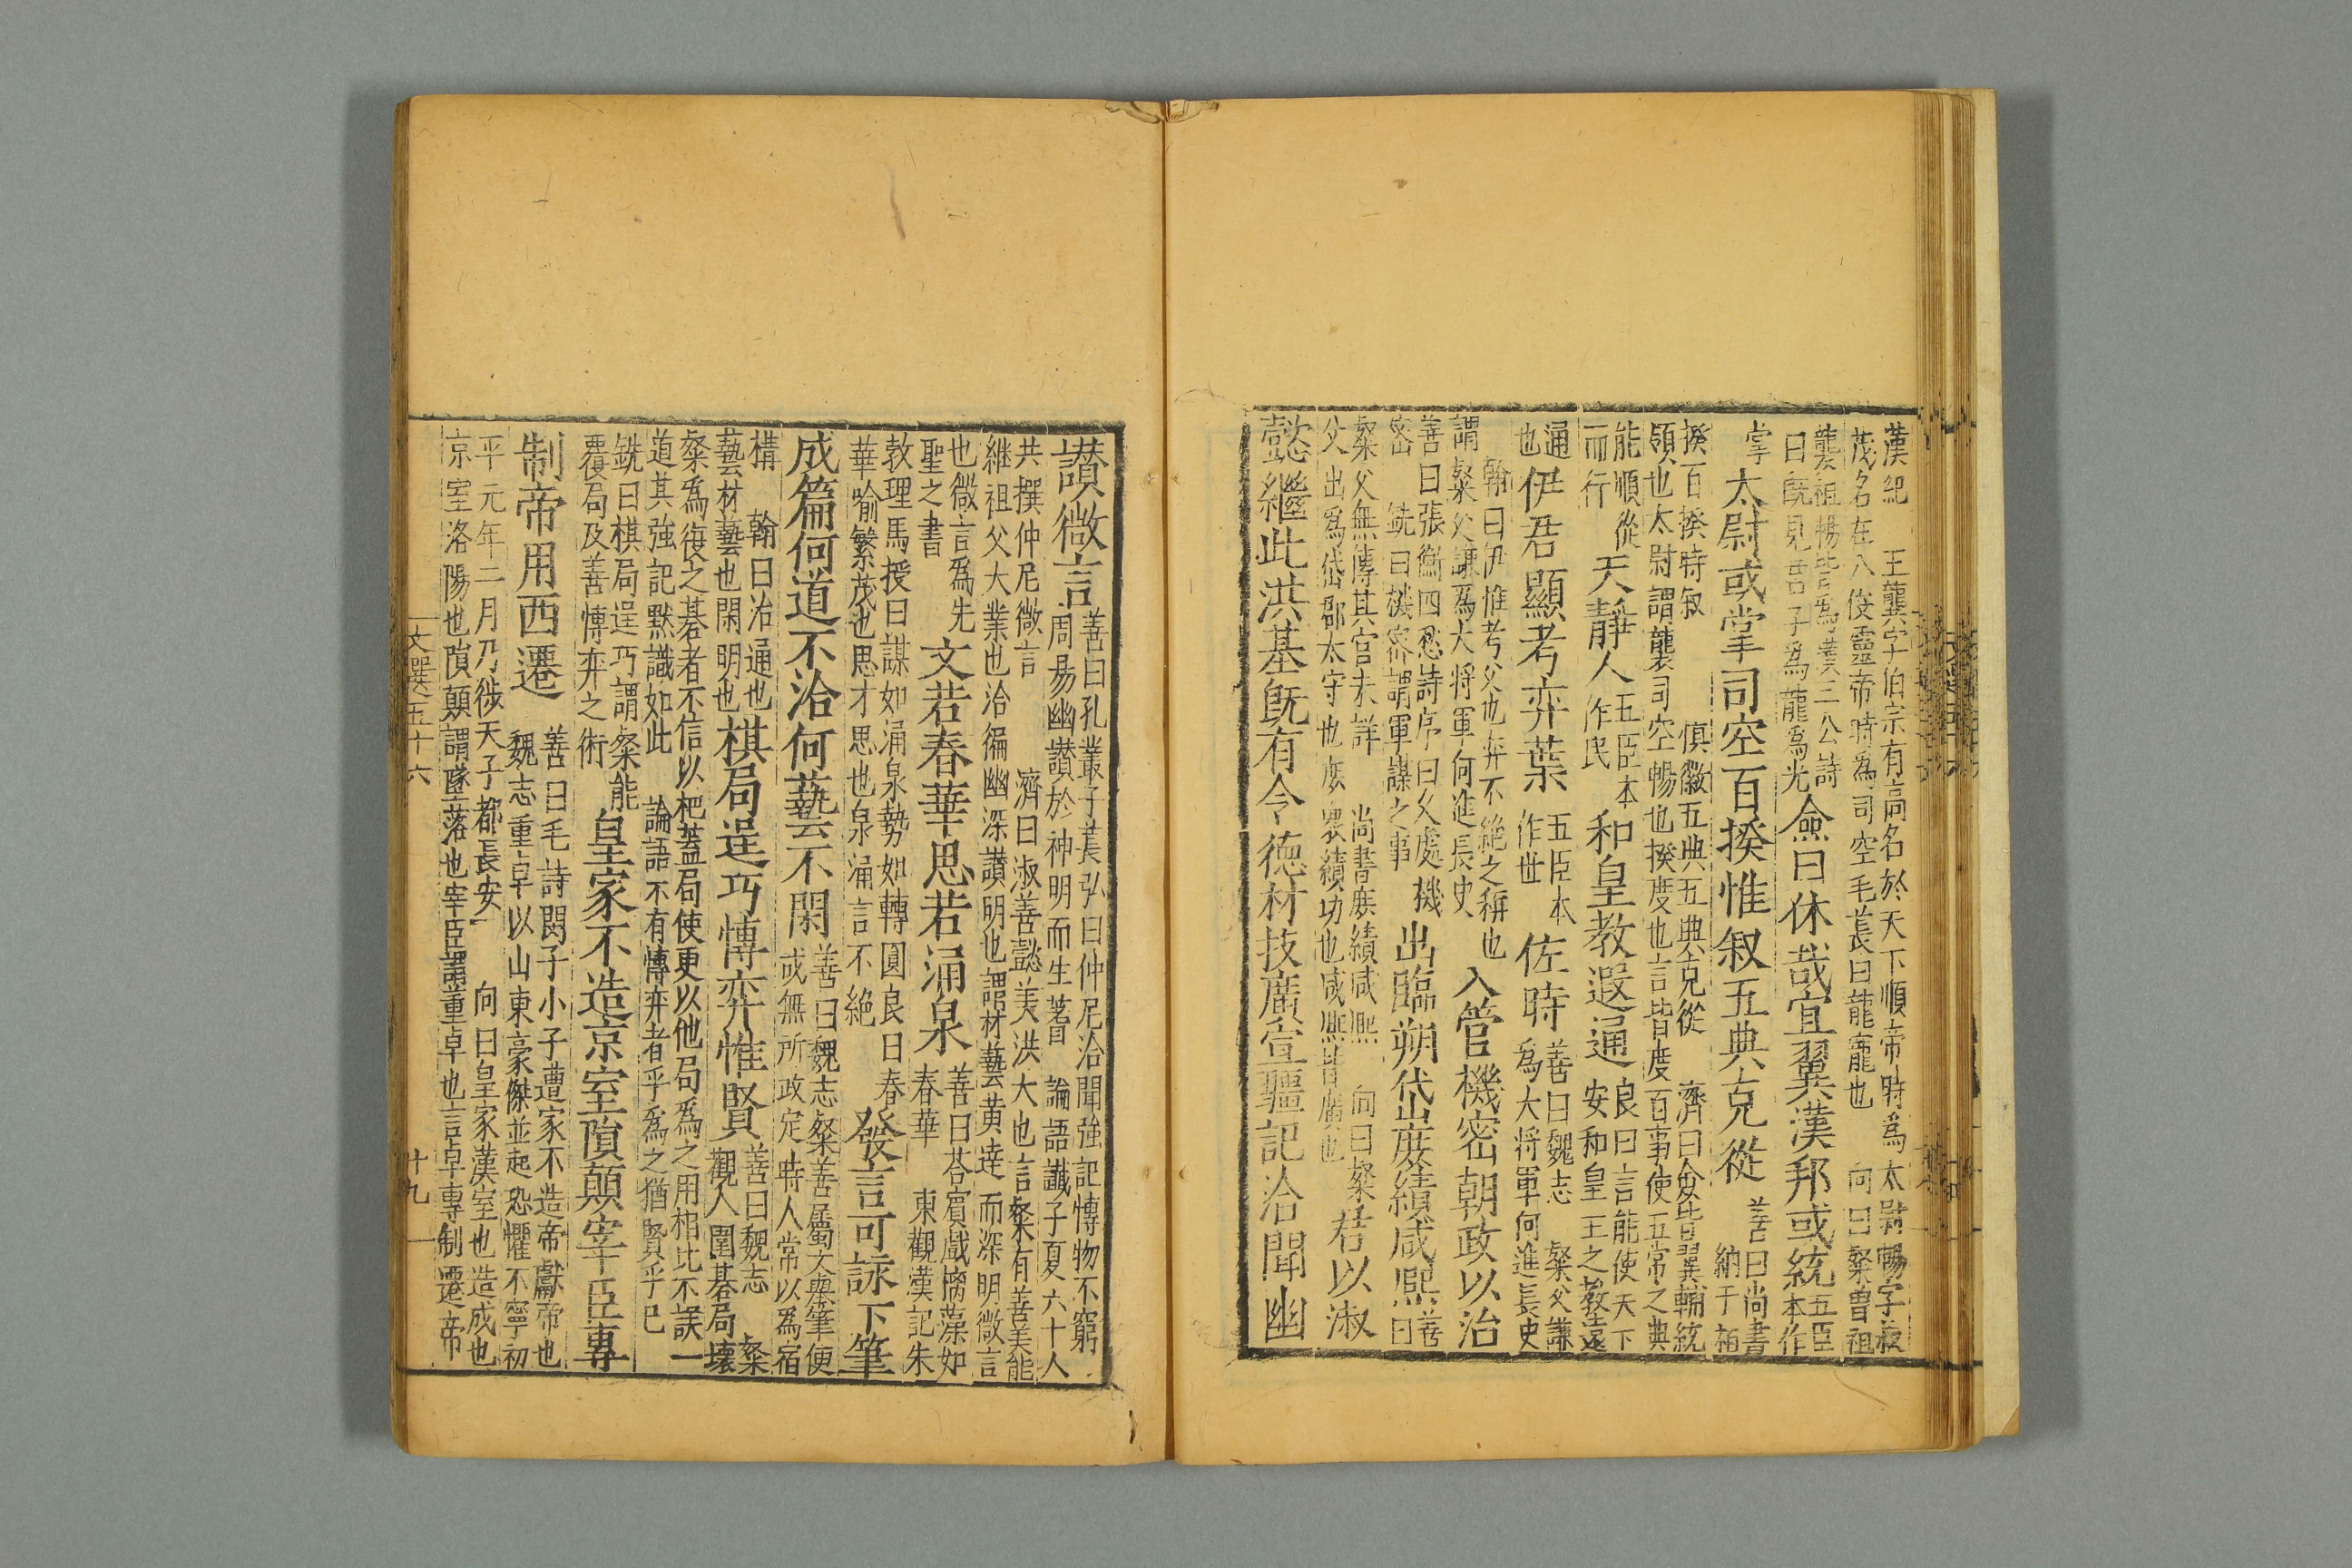 漢紀 王龔字伯宗有高名於天下順帝時爲太尉暢字叔
茂名在八俊靈帝時爲司空毛萇曰龍寵也 向曰粲曽祖
龔祖暢皆爲漢三公詩
曰旣見君子爲龍爲光
僉曰休哉宜翼漢邦或統
五臣
本作
掌
太尉或掌司空百揆惟叙五典克從
善曰尚書
納于
百
揆百揆時叙 慎徽五典五典克從 濟曰僉皆翼輔統
領也太尉謂龔司空暢也揆度也言皆度百事使五常之典
能順從
而行
天静人
五臣本
作民
和皇教遐通
良曰言能使天下
安和皇王之教至遠
通
也
伊君顯考弈葉
五臣本
作世
佐時
善曰魏志 粲父謙
爲大將軍何進長史
翰曰伊惟考父也弈不絶之稱也
謂粲父謙爲大將軍何進長史
入管機密朝政以治
善曰張衡四愁詩序曰久處機
密 銑曰機密謂軍謀之事
出臨朔岱庻績咸熙
善
曰
粲父無傳其官未詳 尚書庻績咸熙 向曰粲
父出爲岱郡太守也庻衆績功也咸熙皆廣也
君以淑
懿繼此洪基旣有令德材技廣宣彊記洽聞幽
讃微言
善曰孔叢子萇弘曰仲尼洽聞強記博物不窮
周易幽讃於神明而生蓍 論語讖子夏六十人
共撰仲尼微言 濟曰淑善懿美洪大也言粲有善美能
継祖父大業也洽徧幽深讃明也謂材藝黄逹而深明微言
也微言爲先
聖之書
文若春華思若涌泉
善曰荅賓戲摛藻如
春華 東觀漢記朱
敦理馬授曰謀如涌泉勢如轉圓良曰春
華喻繁茂也思才思也泉涌言不絶
發言可詠下筆
成篇何道不洽何藝不閑
善曰魏志粲善屬文舉筆便
成無所政定時人常以爲宿
構 翰曰洽通也
藝材藝也閑明也
棋局逞巧博弈惟賢
善曰魏志 粲
觀人圍碁局壞
粲爲復之碁者不信以杷蓋局使更以他局爲之用相比不誤一
道其強記默識如此 論語不有博弈者乎爲之猶賢乎已
銑曰棋局逞巧謂粲能
覆局及善博弈之術
皇家不造京室隕顛宰臣專
制帝用西遷
善曰毛詩閔予小子遭家不造帝獻帝也
魏志董卓以山東豪傑並起恐懼不寧初
平元年二月乃徙天子都長安 向曰皇家漢室也造成也
京室洛陽也隕顛謂墜落也宰臣謂董卓也言卓專制遷帝
文選五十六
十九